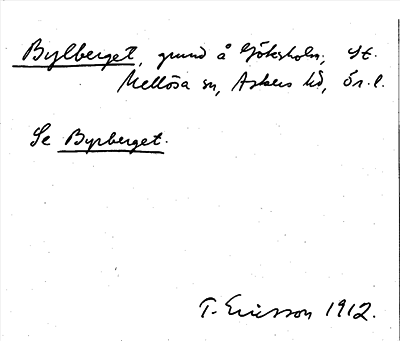 Bylberget, grund å Göksholm, St.
Mellösa sn, Askers hd, Ör. l.
Se Byrberget.
T. Ericsson 1912.